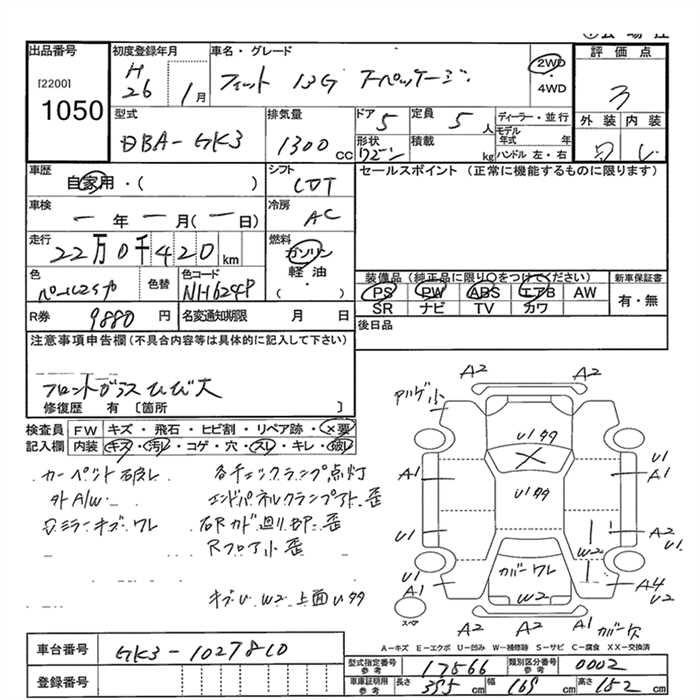 出品番号
[2200]
1050
初度登録年月
H
26 1月
車名・グレード
フィット 13G Fパッケージ
2WD
・
4WD
評価点
3
型式
DBA-GK3
排気量
1300 CC
ドア 5
定員 5 人
形状 ワゴン
積載 kg
ディーラー・並行
モデル年式 年
ハンドル 左・右
外装 内装
車歴
自家用・( )
シフト
CVT
セールスポイント (正常に機能するものに限ります)
車検
ー年ー月(ー日)
冷房
AC
走行
22万0千420km
燃料
ガソリン
軽油
( )
色
色替
色コード
NH624P
装備品(純正品に限り○をつけてください)
PS PW ABS エアB AW
SR ナビ TV カワ
新車保証書
有・無
R券 9880 円
名変通知期限 月 日
後日品
注意事項申告欄(不具合内容等は具体的に記入して下さい)
フロントガラスヒビ大
修復歴 有 [箇所 ]
検査員 FW キズ・飛石・ヒビ割・リペア跡・×要
記入欄 内装 キズ・汚れ・コゲ・穴・スレ・キレ・破レ
カーペント破レ
外A/W
各チェックランプ点灯
エンドパネルクランプ下 歪
ミラーキズ ワレ
Rフロア小 歪
W2 上面
A2
A2
小
A1
A1
U1
U1
A2
U1
W2
カバーワレ
W2
U1
A1
A4
U2
スペア
A2
A1
カバー欠
A-キズ E-エクボ U-凹み W-補修跡 S-サビ C-腐食 XX-交換済
車台番号
GK3-1027810
登録番号
型式指定番号 参考 17566
類別区分番号 参考 0002
車庫証明用 参考 長さ 395 cm 幅 169 cm 高さ 152 cm